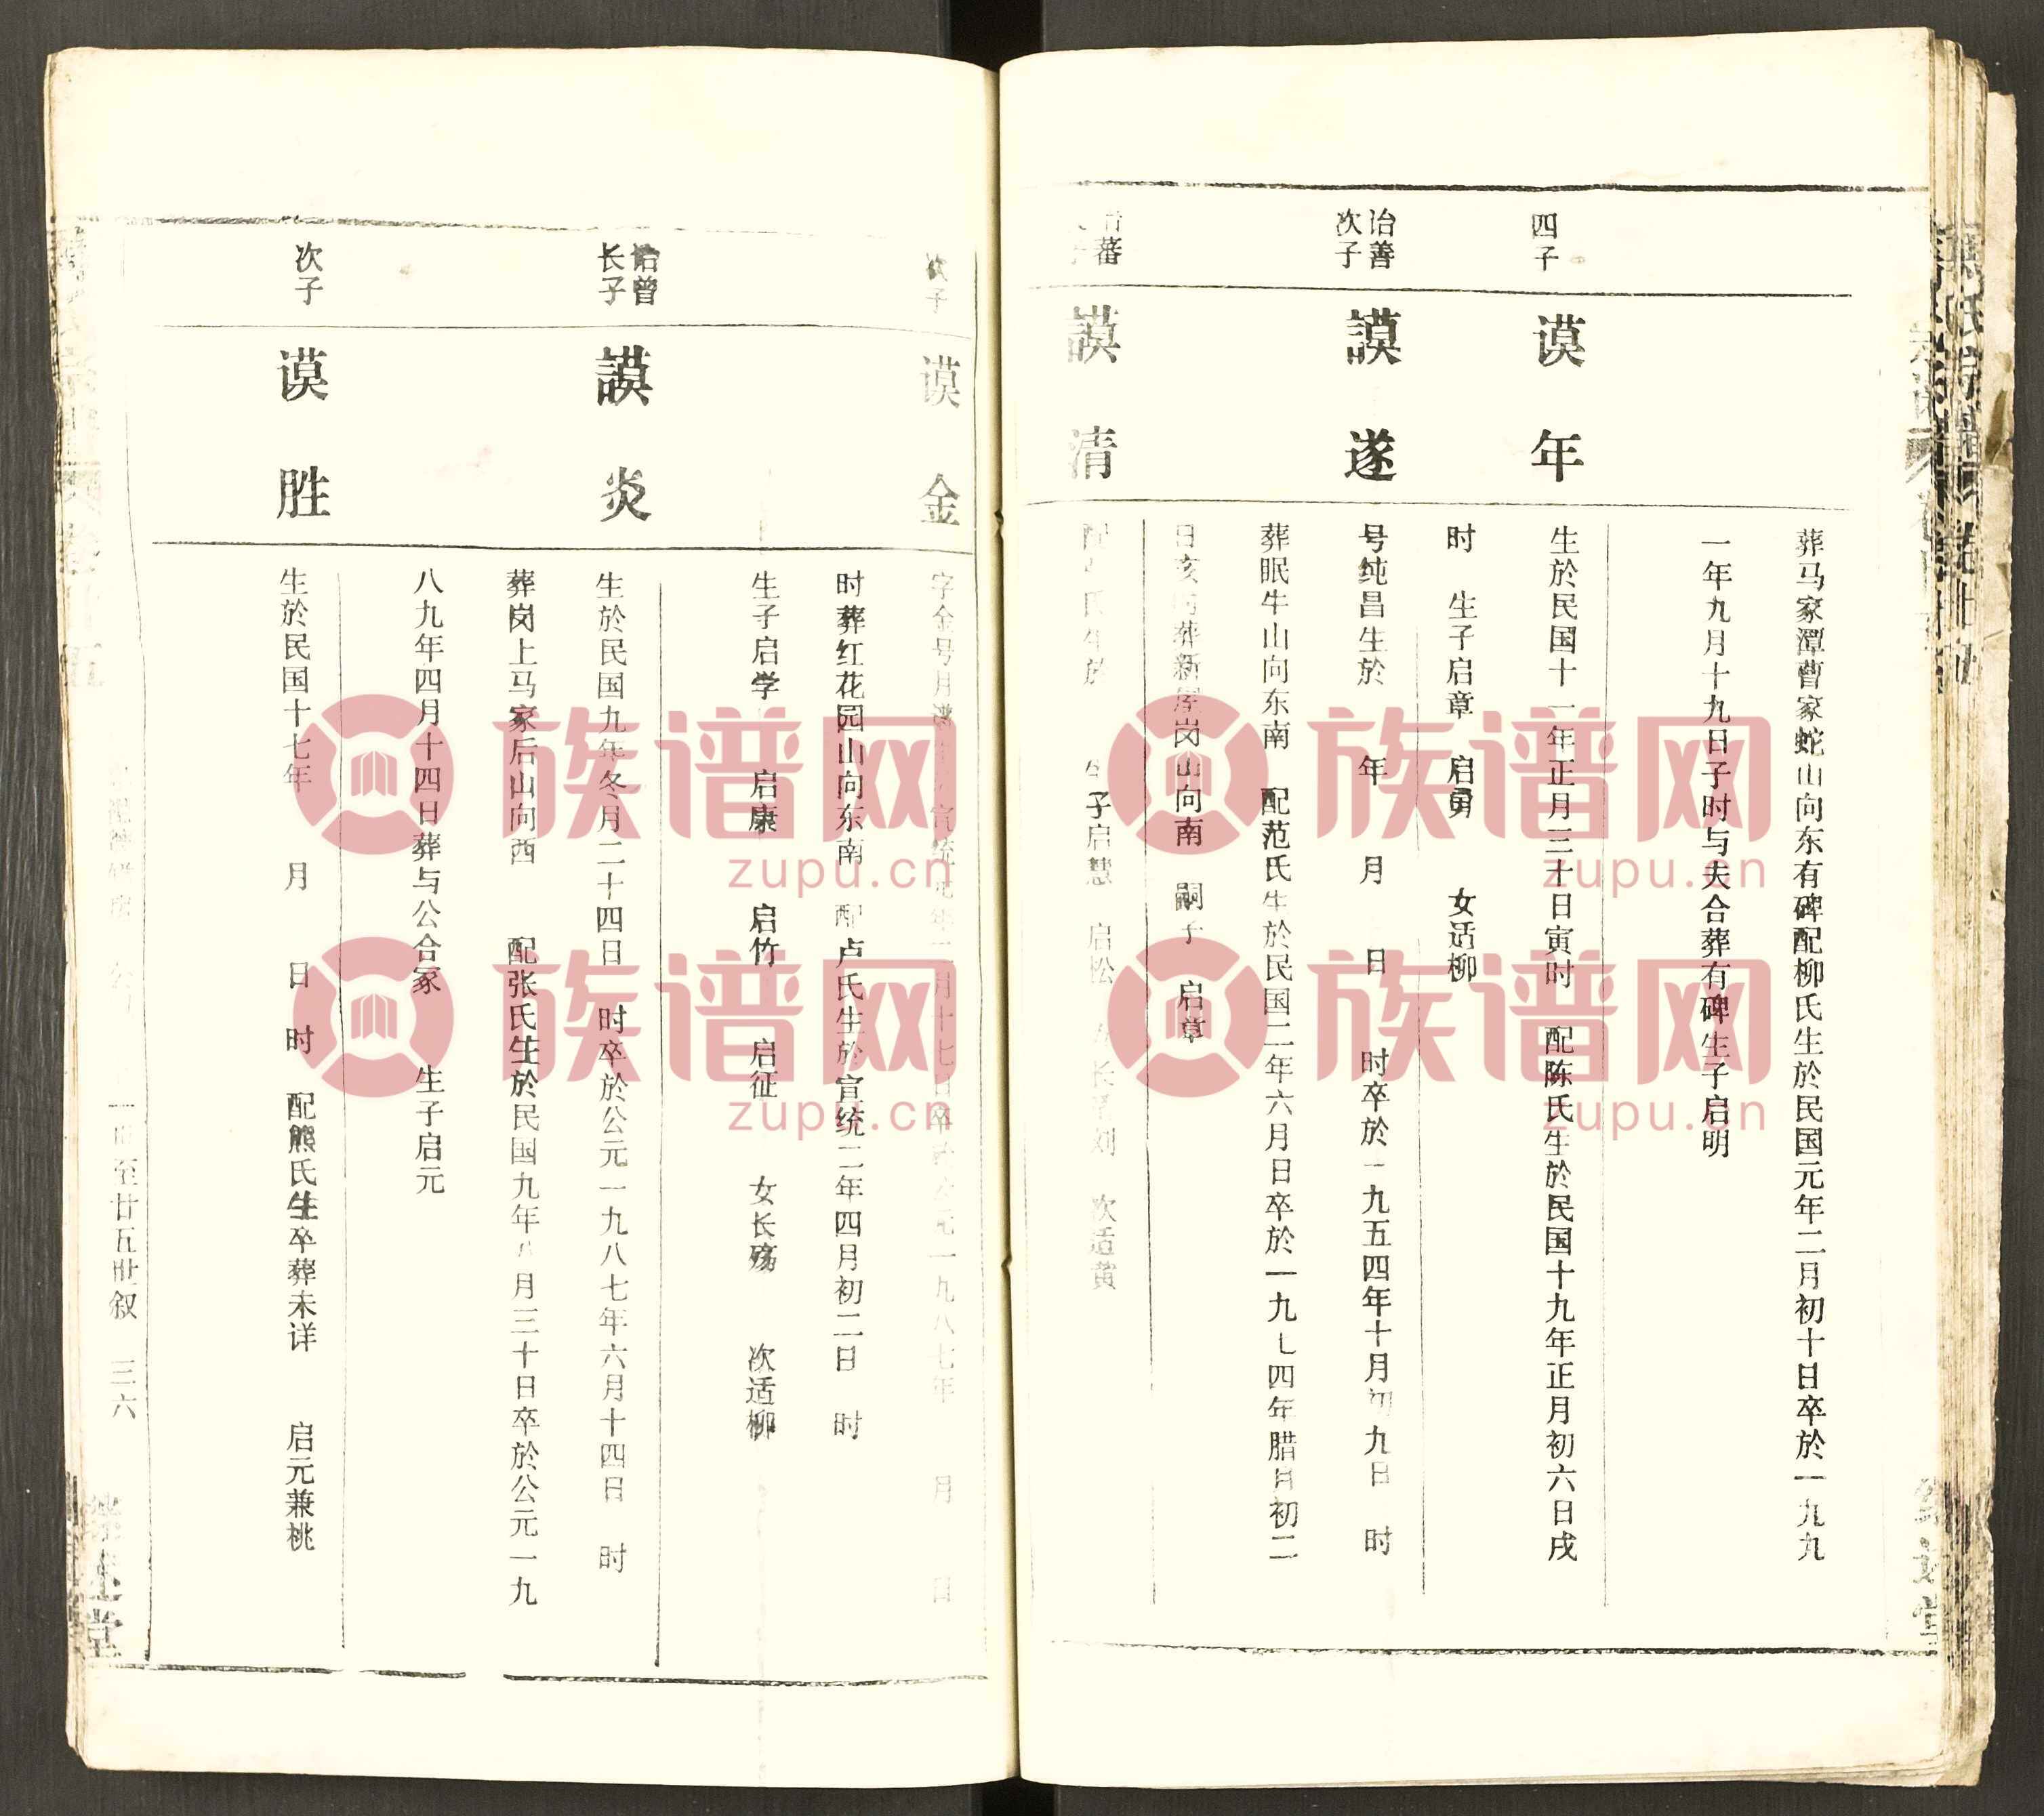 葬马家潭曹家蛇山向东有碑配柳氏生於民国元年二月初十日卒於一九九
一年九月十九日子时与夫合葬有碑生子启明
四子
谟年
生於民国十一年正月三十日寅时 配陈氏生於民国十九年正月初六日戌
时 生子启章 启勇 女适柳
诒善
次子
謨遂
号纯昌生於 年 月 日 时卒於一九五四年十月初九日 时
葬眠牛山向东南 配范氏生於民国二年六月日卒於一九七四年腊月初二
日亥 葬新屋岗山向南 嗣子 启章
蕃
謨清
氏生於 生子启慧 启松 长 刘 次适黄
次子
谟金
字金号月 宣统 年二月十七日卒 元一九八七年 月 日
时葬红花园山向东南 配卢氏生於宣统二年四月初二日 时
生子启学 启康 启竹 启征 女长殇 次适柳
诒曾
长子
謨炎
生於民国九年冬月二十四日 时卒於公元一九八七年六月十四日 时
葬岗上马家后山向西 配张氏生於民国九年八月三十日卒於公元一九
八九年四月十四日葬与公合冢 生子启元
次子
谟胜
生於民国十七年 月 日 时 配熊氏生卒葬未详 启元兼祧
至廿五世叙 三六
堂
族谱网
zupu.cn
族谱网
zupu.cn
族谱网
zupu.cn
族谱网
zupu.cn